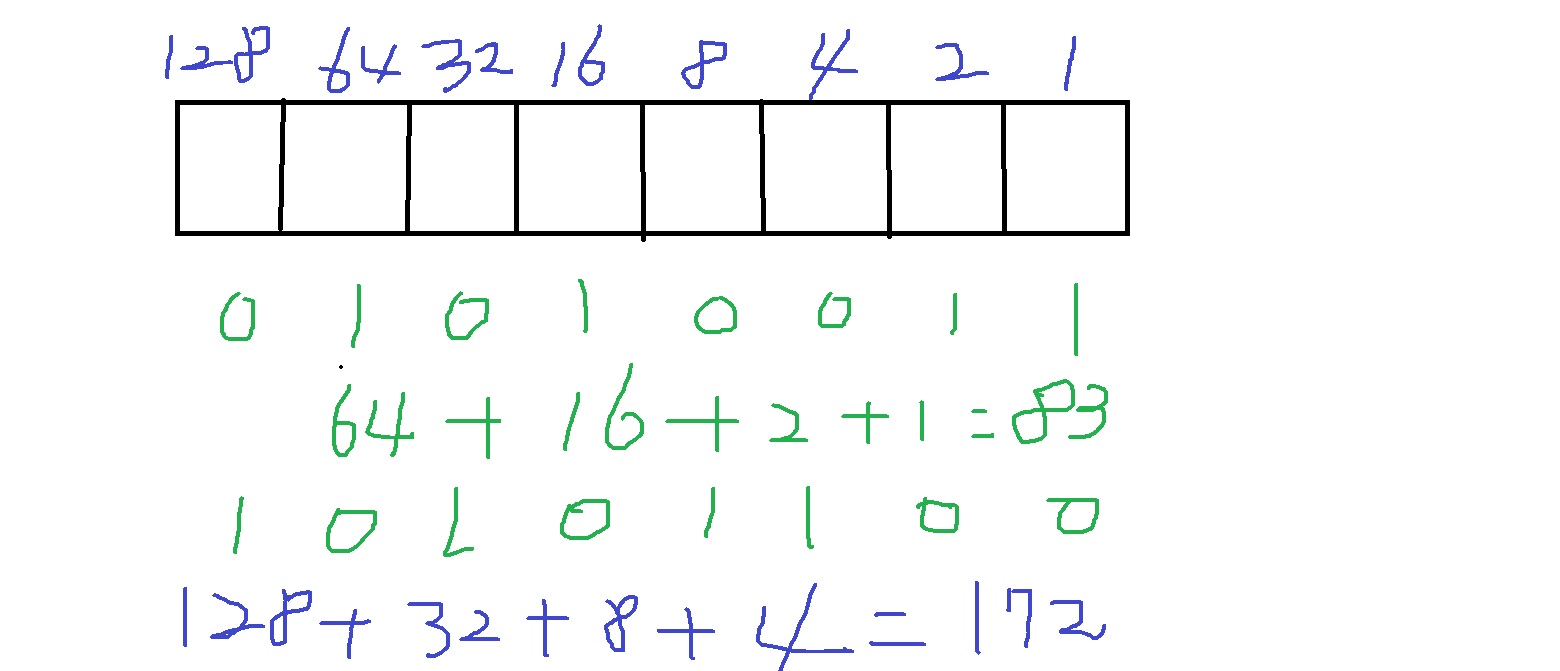 128 64 32 16 8 4 2 1
0 1 0 1 0 0 1 1
64 + 16 + 2 + 1 = 83
1 0 1 0 1 1 0 0
128 + 32 + 8 + 4 = 172